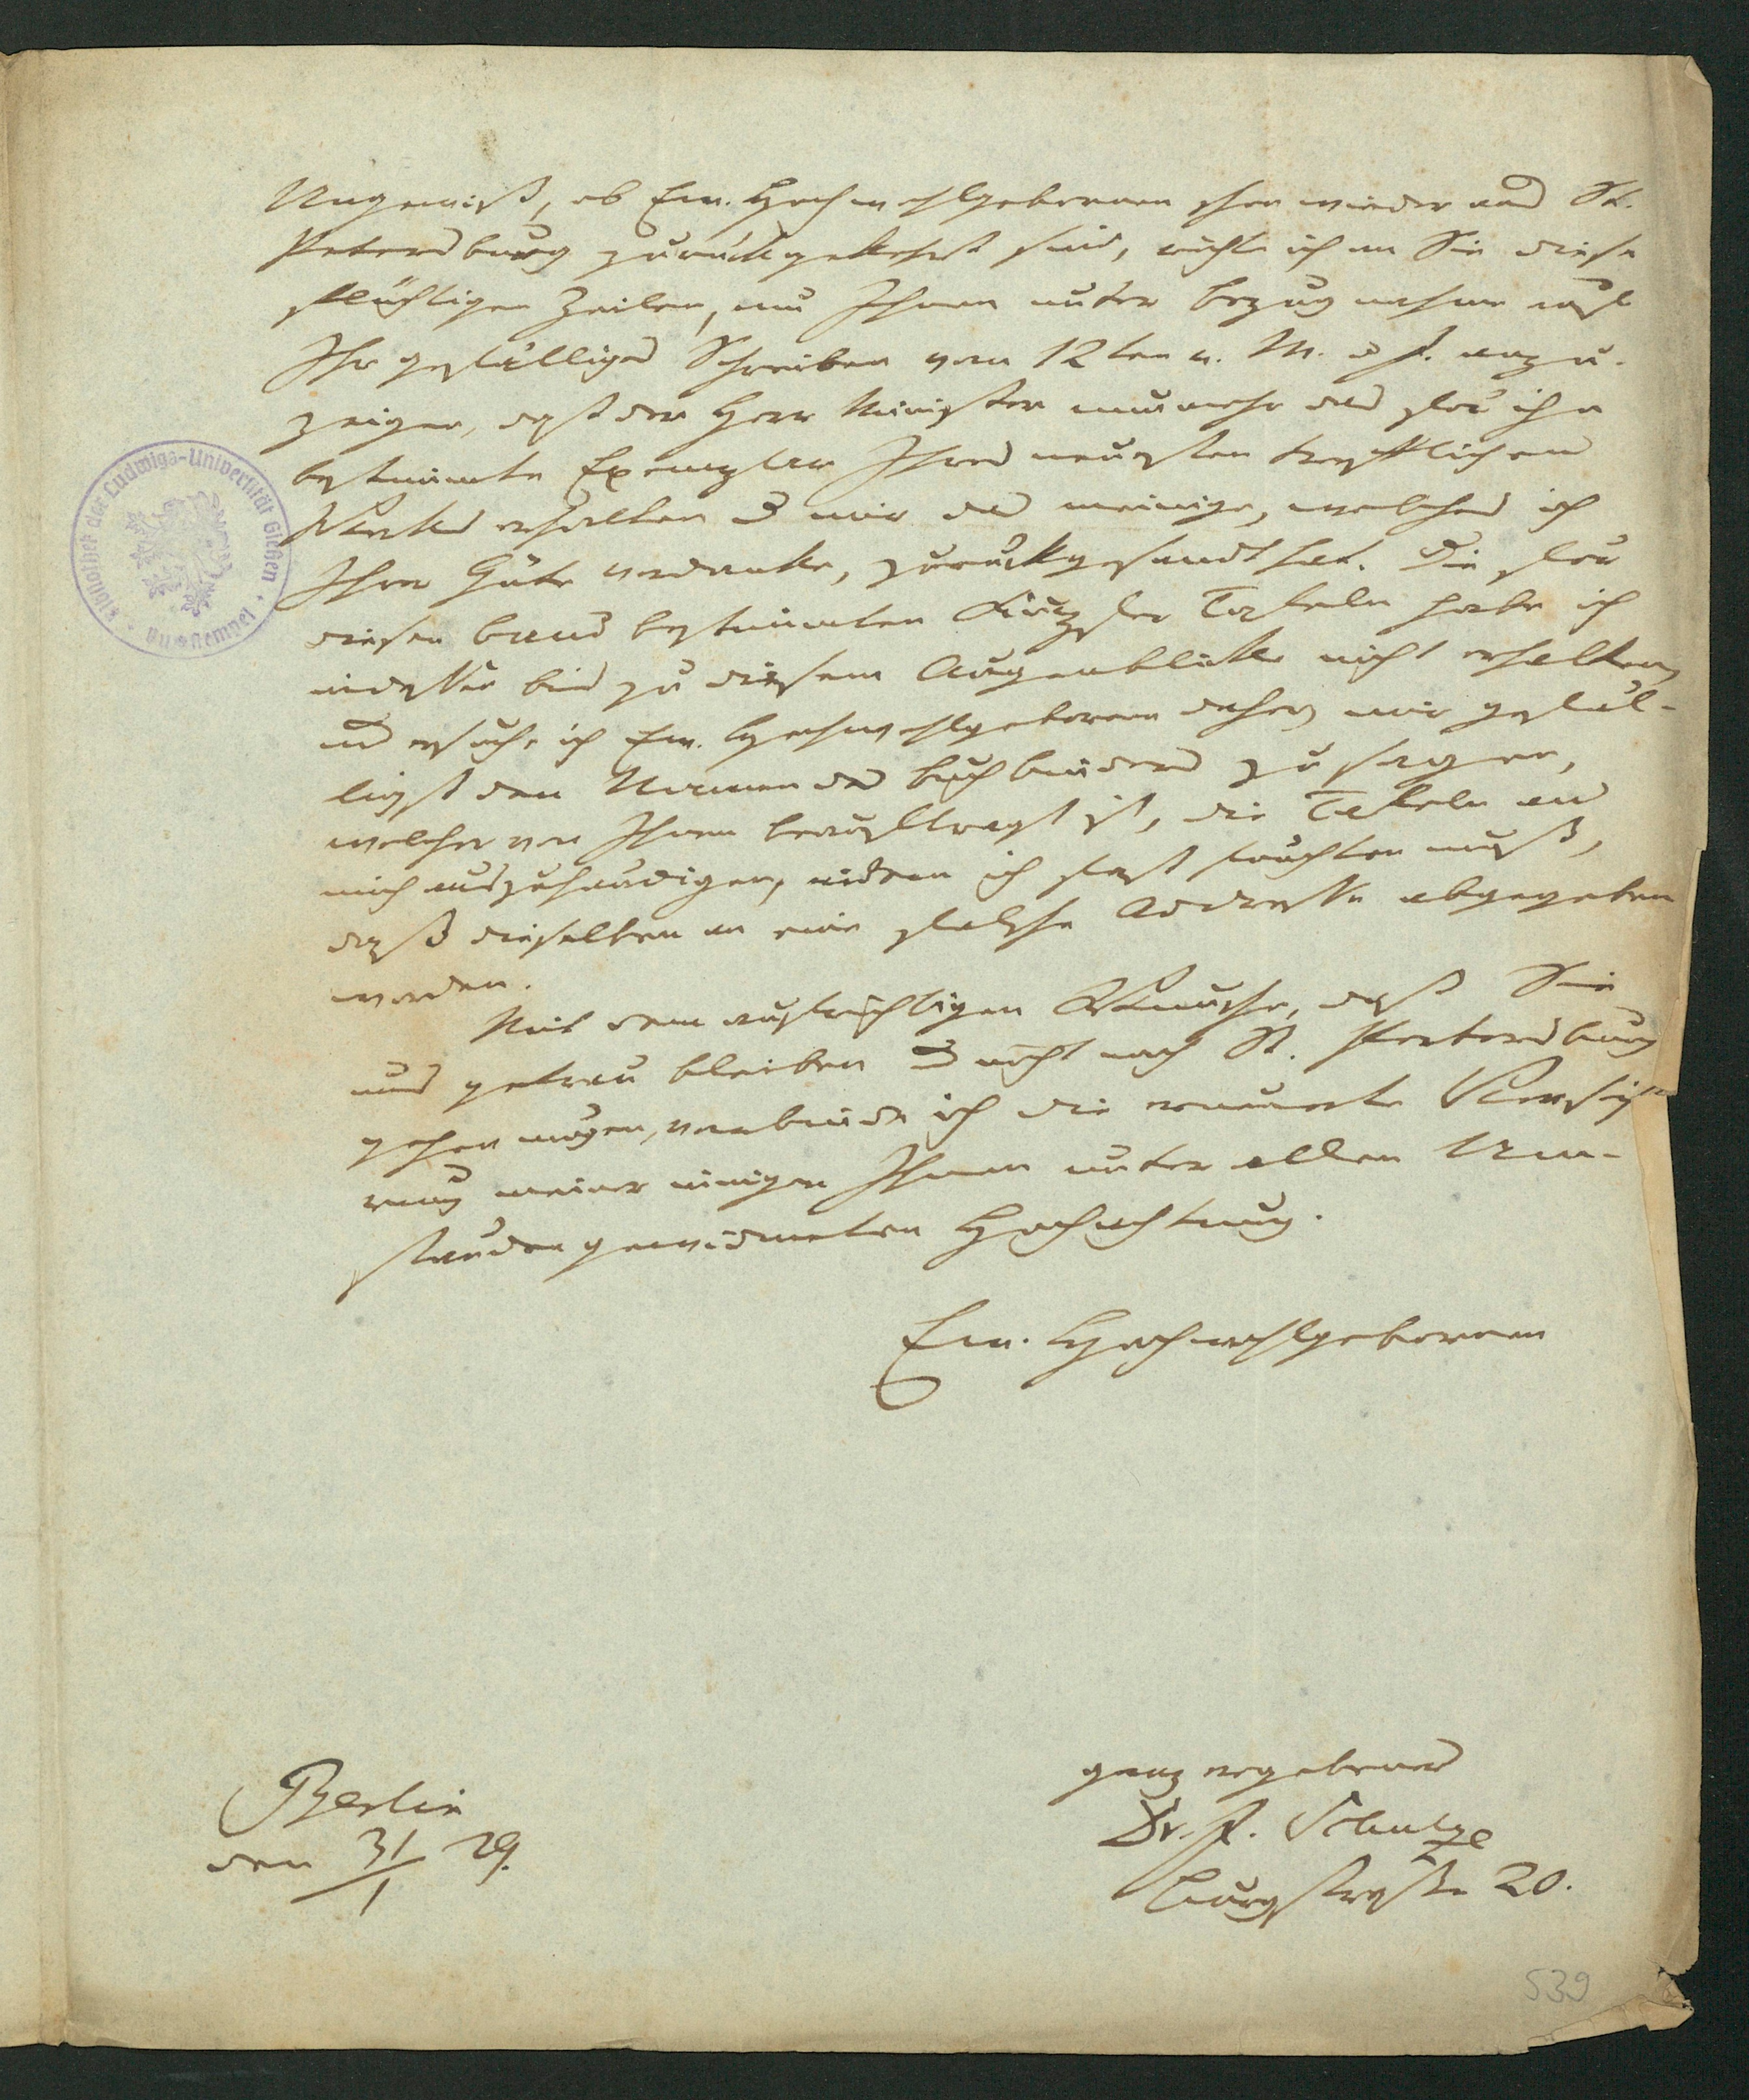 Ungewiß, ob Ew. Hochwohlgeboren schon wieder aus St.
Petersburg zurückgekehrt sind, richte ich an Sie diese
flüchtigen Zeilen, um Ihnen unter Bezugnahme auf
Ihr gefälliges Schreiben vom 12ten v. M. u J. anzu-
zeigen, daß der Herr Minister nunmehr das für ihn
bestimmte Exemplar Ihres neusten trefflichen
Werkes erhalten u mir das meinige, welches ich
Ihrer Güte verdanke, zurückgesandt hat. Die für
diesen Band bestimmten Tafeln habe ich
indessen bis zu diesem Augenblicke nicht erhalten,
und ersuche ich Ew. Hochwohlgeboren daher, mir gefäl-
ligst den Namen des Buchbinders zu sagen,
welcher von Ihnen beauftragt ist, die Tafeln an
mich auszuhändigen, indem ich fast fürchten muß,
daß dieselben an eine falsche Addresse abgegeben
worden.
Mit dem aufrichtigen Wunsche, daß Sie
uns getreu bleiben u nicht nach St. Petersburg
gehen mögen, verbinde ich die erneuerte Versiche-
rung meiner innigen Ihnen unter allen Um-
ständen gewidmeten Hochachtung.
Ew. Hochwohlgeboren
ganz ergebener
Dr. J. Schulze
Burgstraße 20.
Berlin
den 31/1 29.
Bibliothek der Ludwigs-Universität Gießen
539